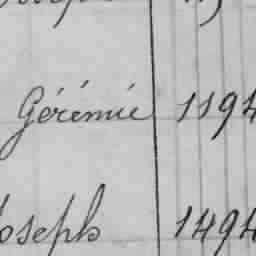 Gérémie 1194
Joseph 1494